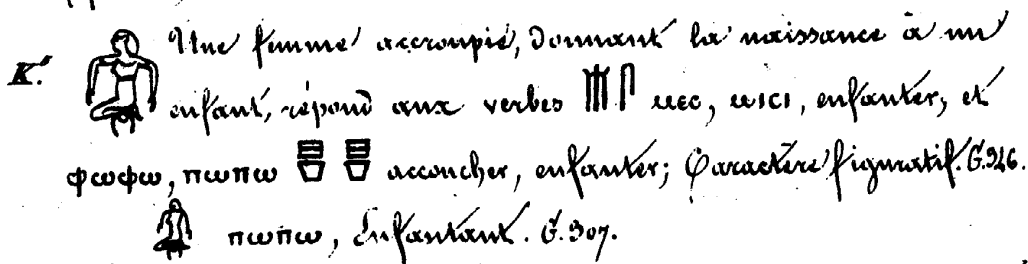 K. Une femme accroupie, donnant la naissance à un
enfant, répond aux verbes 𓄟𓋴 ⲙⲉⲥ, ⲙⲓⲥⲓ, enfanter, et
ⲫⲱⲫⲱ, ⲡⲱⲡⲱ accoucher, enfanter; Caractère figuratif. G. 346.
ⲡⲱⲡⲱ, Enfantant. G. 307.